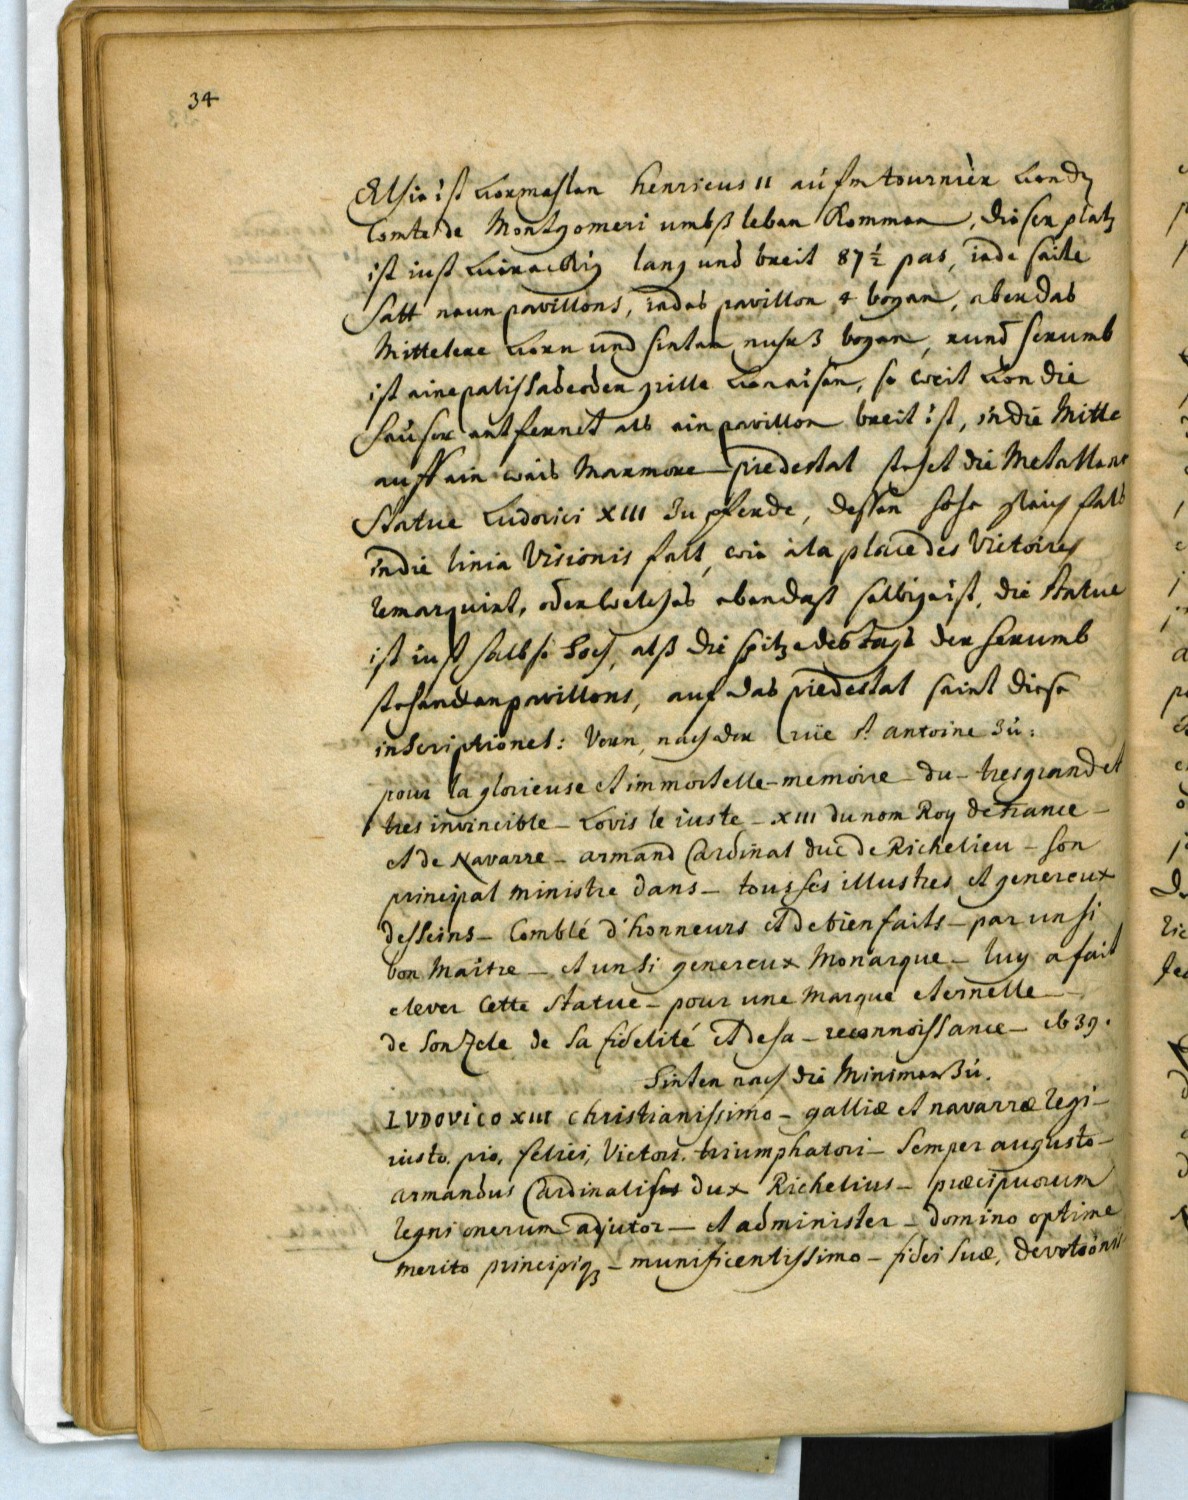 34
Alhie ist vormahlen Henricus II aufm tournier von dem
Comte de Montgomeri umbß leben kommen, dieser platz
ist iust viereckig lang und breit 87½ pas, iede seite
hatt neun pavillons, iedes pavillon 4 bogen, aber das
Mittelere vorn und hinten nuhr 3 bogen, rund herumb
ist eine palissade oder grille von eisen, so weit von die
häuser entfernet als ein pavillon breit ist, in die Mitte
auff ein weis Marmore piedestal stehet die Metallene
Statue Ludovici XIII zu pferde, dessen höhe gleich fals
in die linia Visionis falt, wie à la place des Victoires
remarquirt, oder welches eben dasselbige ist, die Statue
ist iust halb so hoch, alß die spitze des tags der herumb
stehenden pavillons, auf das piedestal seint diese
inscriptiones: Vorn, nach der rüe St. antoine zu:
pour la glorieuse et immortelle - memoire - du - tres grand et
tres invincible - Lovis le iuste - XIII du nom Roy de France -
et de Navarre - armand Cardinal duc de Richelieu - son
principal ministre dans - tous ses illustres et genereux
desseins - Comblé d'honneurs et de bienfaits - par un si
bon Maitre - et un si genereux Monarque - luy a fait
elever Cette Statue - pour une Marque eternelle -
de Son Zele de Sa fidelité et de sa - reconnoissance - 1639.
Hinten nach die Minimen zu.
LVDOVICO XIII Christianissimo - galliæ et navarræ regi -
iusto. pio, felici, Victori. triumphatori - Semper augusto -
armandus Cardinalis dux Richelius - præcipuorum
regni onerum adjutor - et administer - domino optime
merito principiq3 - munificentissimo - fidei suæ, devotionis